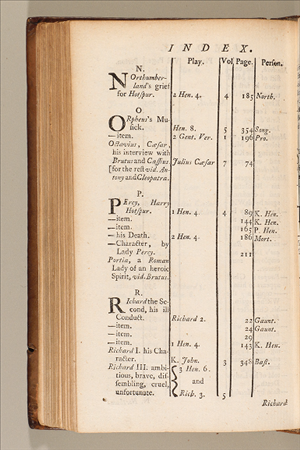 INDEX.
Play. Vol. Page. Person.
N.
Northumber-
land's grief
for Hotspur. 2 Hen. 4. 4 185 North.
O.
ORpheus's Mu-
sick. Hen. 8. 5 354 Song.
—item. 2 Gent. Ver. 1 196 Pro.
Octavius, Cæsar,
his interview with
Brutus and Cassius. Julius Cæsar 7 74
[for the rest vid. An-
tony and Cleopatra.
P.
PErcy, Harry
Hotspur. 1 Hen. 4. 4 89 K. Hen.
—item. 144 K. Hen.
—item. 165 P. Hen.
—his Death. 2 Hen. 4. 186 Mort.
—Character, by
Lady Percy. 211
Portia, a Roman
Lady of an heroic
Spirit, vid. Brutus.
R.
RIchard the Se-
cond, his ill
Conduct. Richard 2. 22 Gaunt.
—item. 24 Gaunt.
—item. 29
—item. 1 Hen. 4. 143 K. Hen.
Richard I. his Cha-
racter. K. John. 3 348 Bast.
Richard III. ambi-
tious, brave, dis-
sembling, cruel,
unfortunate. 3 Hen. 6. and Rich. 3. 5
Richard